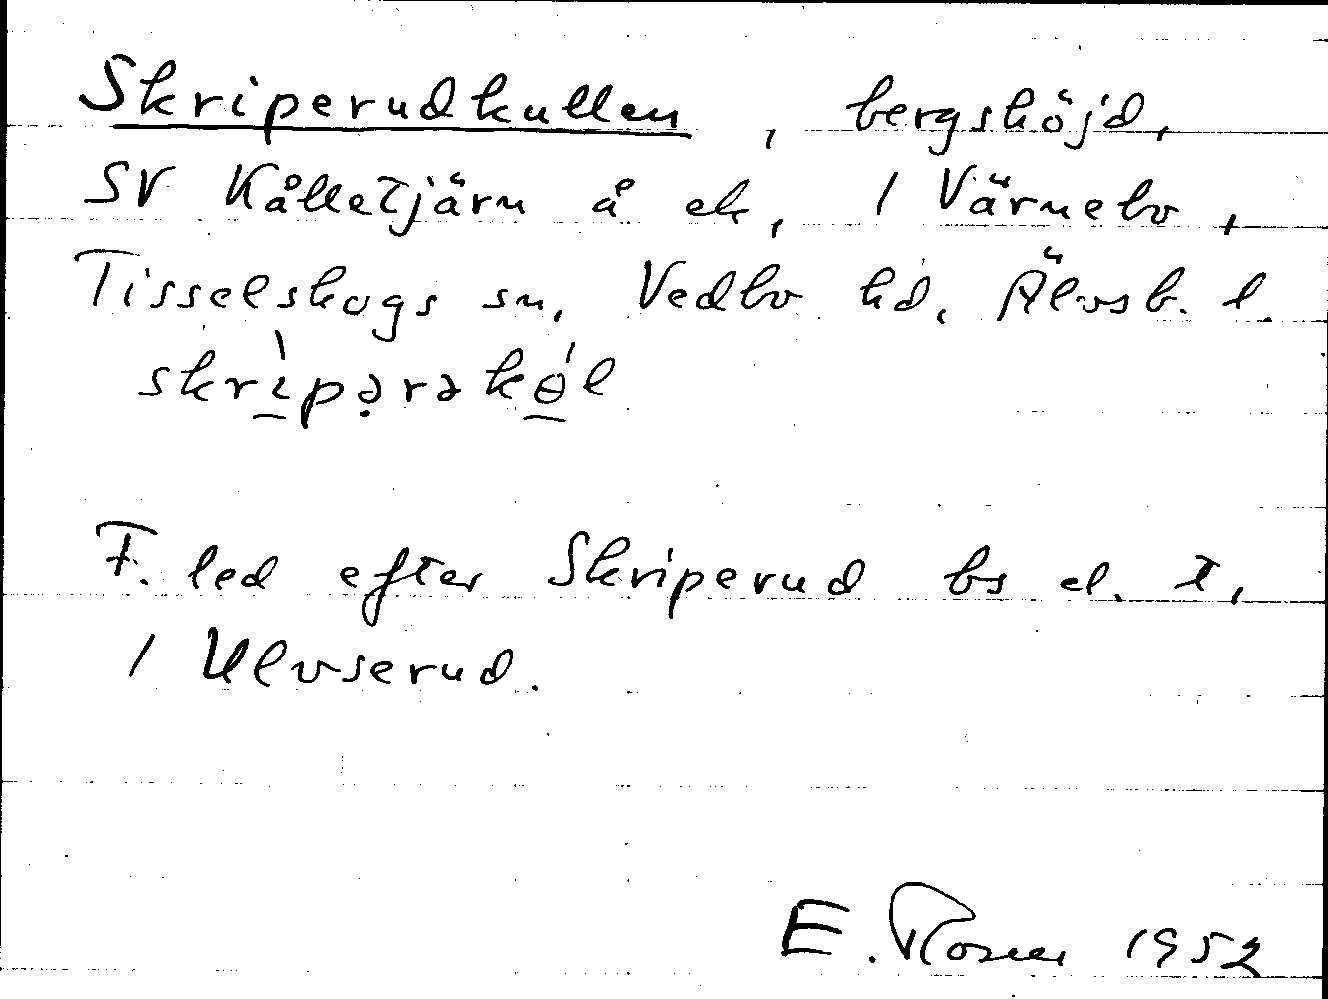 Skriperudkullen, bergshöjd,
SV Kålletjärn å ek, / Värnebo,
Tisselskogs sn, Vedbo hd, Älvsb. l.
skrìpə̣rəkɵ́l
F. led efter Skriperud bs el. t,
/ Ulvserud.
E. 1952